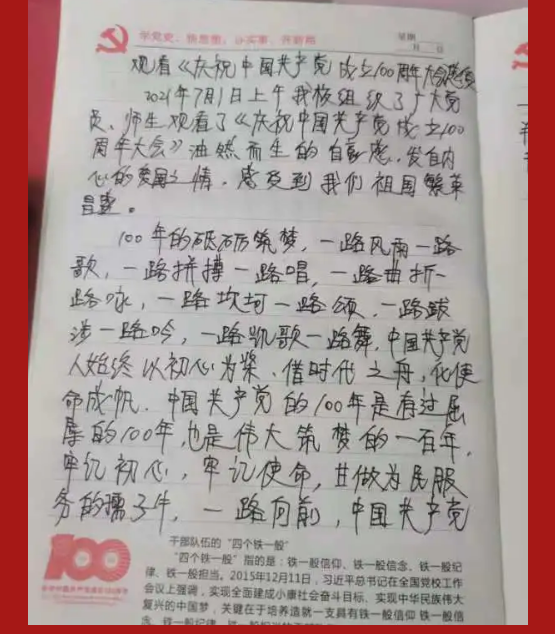 学党史、悟思想、办实事、开新局
星期
月 日
观看《庆祝中国共产党成立100周年大会》感受
2021年7月1日上午我校组织了广大党
员、师生观看了《庆祝中国共产党成立100
周年大会》油然而生的自豪感,发自内
心的爱国之情,感受到我们祖国繁荣
昌盛。
100年的砥砺筑梦,一路风雨一路
歌,一路拼搏一路唱,一路曲折一
路咏,一路坎坷一路颂,一路跋
涉一路吟,一路凯歌一路舞,中国共产党
人始终以初心为桨、借时代之舟,化使
命成帆.中国共产党的100年是有过屈
辱的100年,也是伟大筑梦的一百年,
牢记初心,牢记使命,甘做为民服
务的孺子牛,一路向前,中国共产党
干部队伍的“四个铁一般”
“四个铁一般”指的是:铁一般信仰、铁一般信念、铁一般纪
律、铁一般担当。2015年12月11日,习近平总书记在全国党校工作
会议上强调,实现全面建成小康社会奋斗目标、实现中华民族伟大
复兴的中国梦,关键在于培养造就一支具有铁一般信仰、铁一般信
念、铁一般纪律、铁一般担当的
100